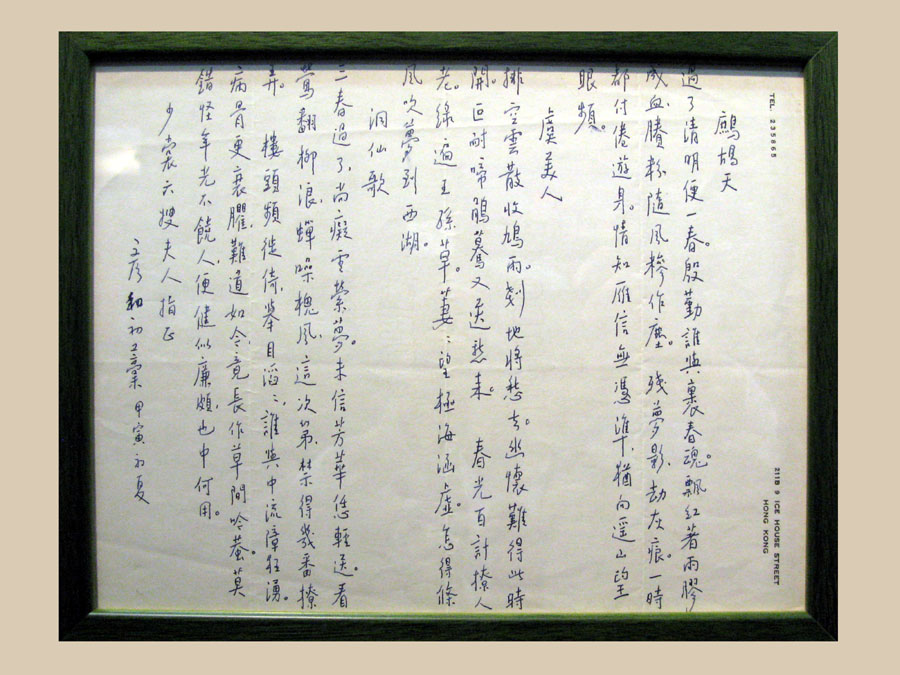 TEL. 235865
211B 9 ICE HOUSE STREET
HONG KONG
鷓鴣天
過了清明便一春。殷勤誰與裹春魂。飄紅著雨膠
成血、賸粉隨風糝作塵。 殘夢影、劫灰痕。一時
都付倦遊身。情知雁信無憑準、猶向遥山望
眼頻。
虞美人
排空雲散收鳩雨。剗地將愁去。幽懷難得此時
開。叵耐啼鵑驀又送愁來。 春光百計撩人
老。綠遍王孫草。萋萋望極海涵虛。怎得條
風吹夢到西湖。
洞仙歌
三春過了、尚癡雲縈夢。未信芳華恁輕送。看
鶯翻柳浪、蟬噪槐風、這次第、禁得幾番撩
弄。 樓頭頻徙倚、擧目滔滔、誰與中流障狂湧。
病骨更衰臞、難道如今、竟長作草間吟蛩。莫
錯怪年光不饒人、便健似廉頗、也中何用。
少裳六嫂夫人指正
文彦和初工稾 甲寅初夏